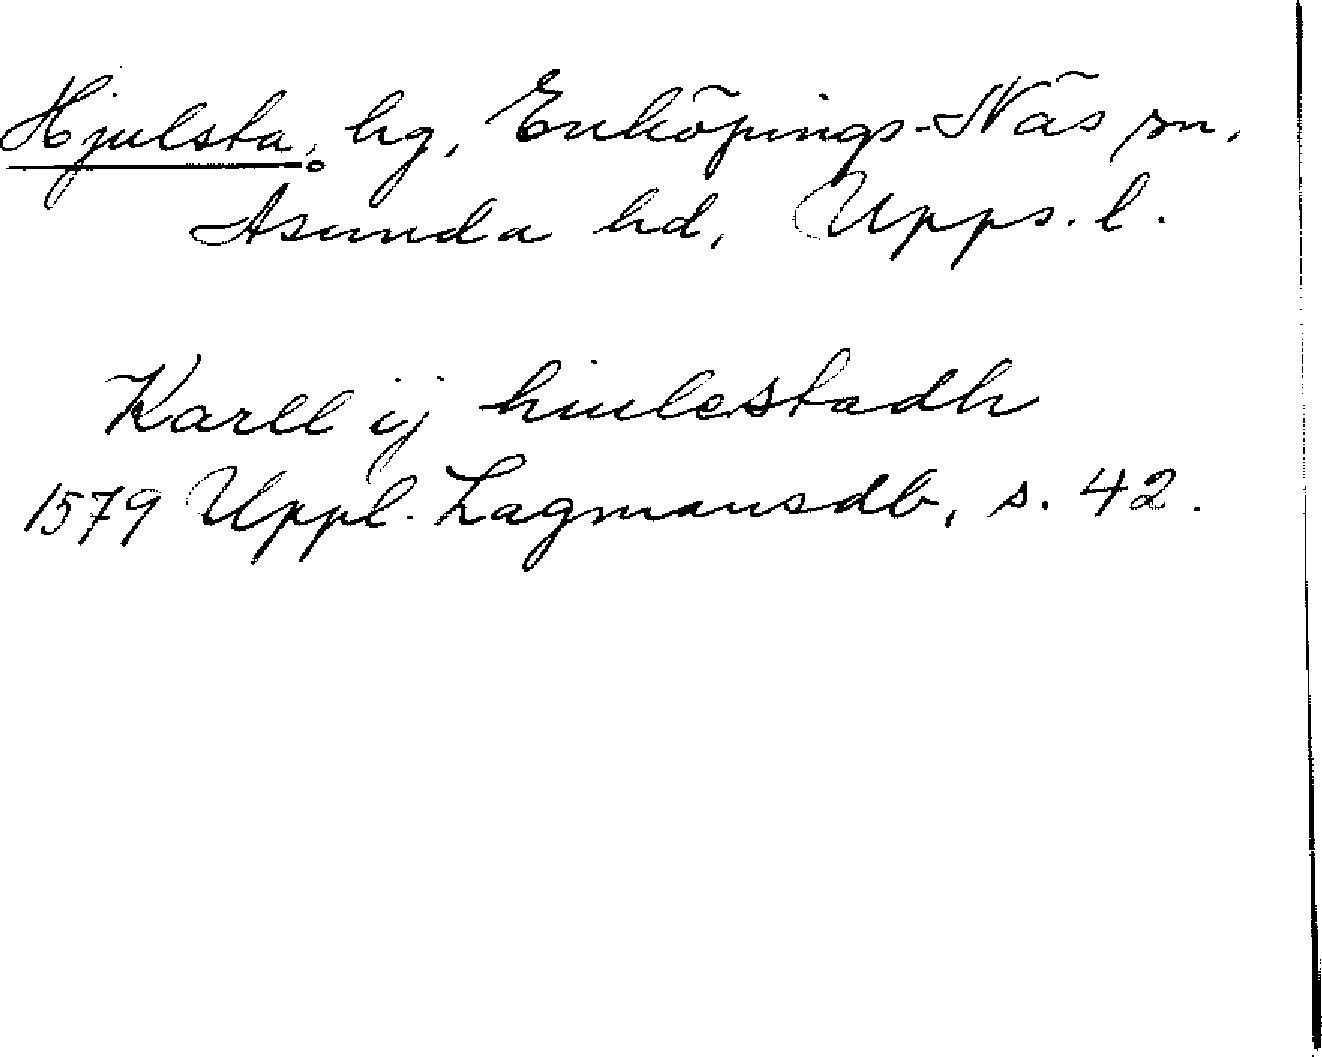 Hjulsta, hg, Enköpings-Näs sn,
Åsunda hd, Upps. l.
Karll ij hiulestadh
1579 Uppl. Lagmansdb, s. 42.